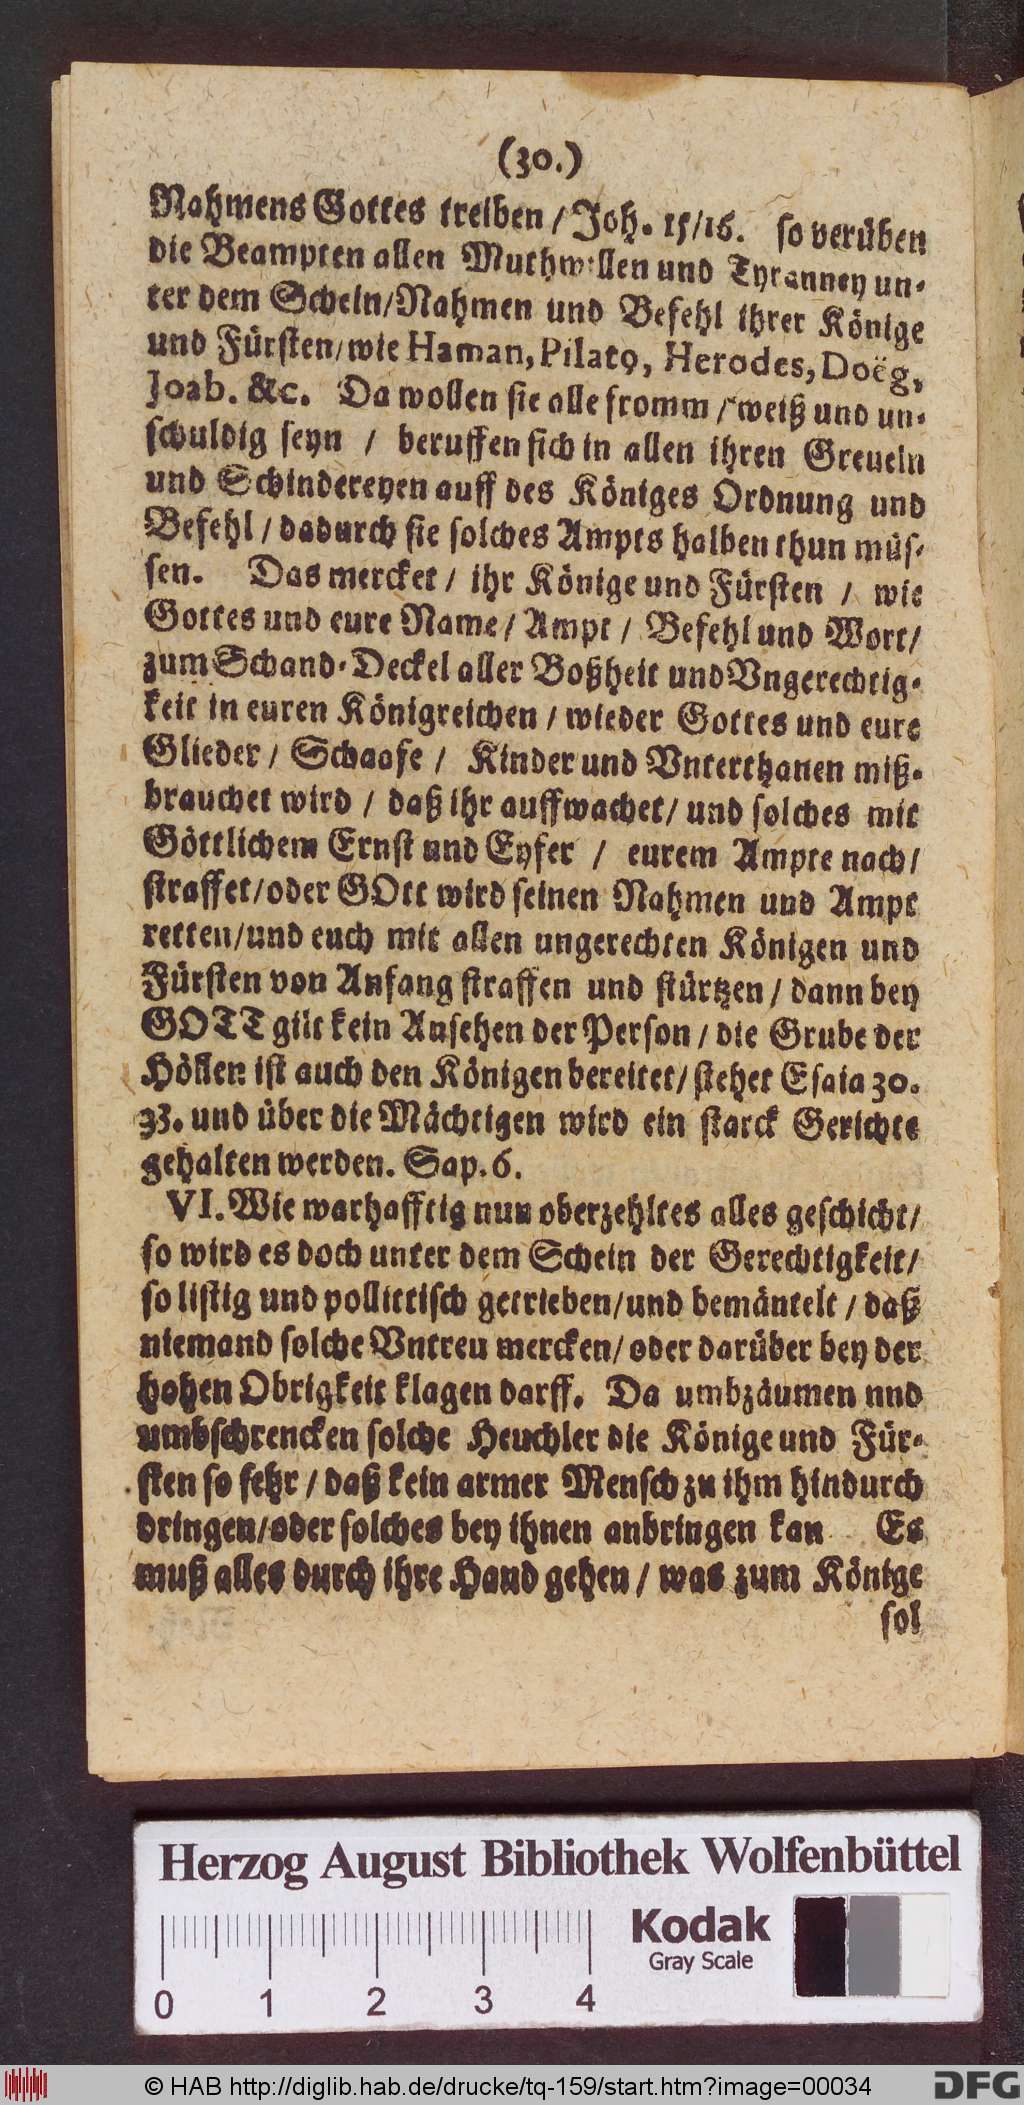 (30.)
Nahmens Gottes treiben / Joh. 15/16. so verüben
die Beampten allen Muthwillen und Tyranney un-
ter dem Schein/Nahmen und Befehl ihrer Könige
und Fürsten/wie Haman, Pilatꝰ, Herodes, Doëg,
Joab. &c. Da wollen sie alle fromm / weiß und un-
schuldig seyn / beruffen sich in allen ihren Greueln
und Schindereyen auff des Königes Ordnung und
Befehl / dadurch sie solches Ampts halben thun müs-
sen. Das mercket / ihr Könige und Fürsten / wie
Gottes und eure Name / Ampt / Befehl und Wort/
zum Schand-Deckel aller Boßheit und Vngerechtig-
keit in euren Königreichen / wieder Gottes und eure
Glieder / Schaafe / Kinder und Vnterthanen miß-
brauchet wird / daß ihr auffwachet/ und solches mit
Göttlichem Ernst und Eyfer / eurem Ampte nach/
straffet/oder GOtt wird seinen Nahmen und Ampt
retten/und euch mit allen ungerechten Königen und
Fürsten von Anfang straffen und stürtzen / dann bey
GOTT gilt kein Ansehen der Person / die Grube der
Höllen ist auch den Königen bereitet/ stehet Esaia 30.
33. und über die Mächtigen wird ein starck Gerichte
gehalten werden. Sap. 6.
VI. Wie warhafftig nun oberzehltes alles geschicht/
so wird es doch unter dem Schein der Gerechtigkeit/
so listig und pollittisch getrieben/und bemäntelt / daß
niemand solche Vntreu mercken/ oder darüber bey der
hohen Obrigkeit klagen darff. Da umbzäumen nnd
umbschrencken solche Heuchler die Könige und Für-
sten so sehr / daß kein armer Mensch zu ihm hindurch
dringen/oder solches bey ihnen anbringen kan Es
muß alles durch ihre Hand gehen / was zum Könige
sol
Herzog August Bibliothek Wolfenbüttel
Kodak
Gray Scale
0 1 2 3 4
© HAB http://diglib.hab.de/drucke/tq-159/start.htm?image=00034
DFG